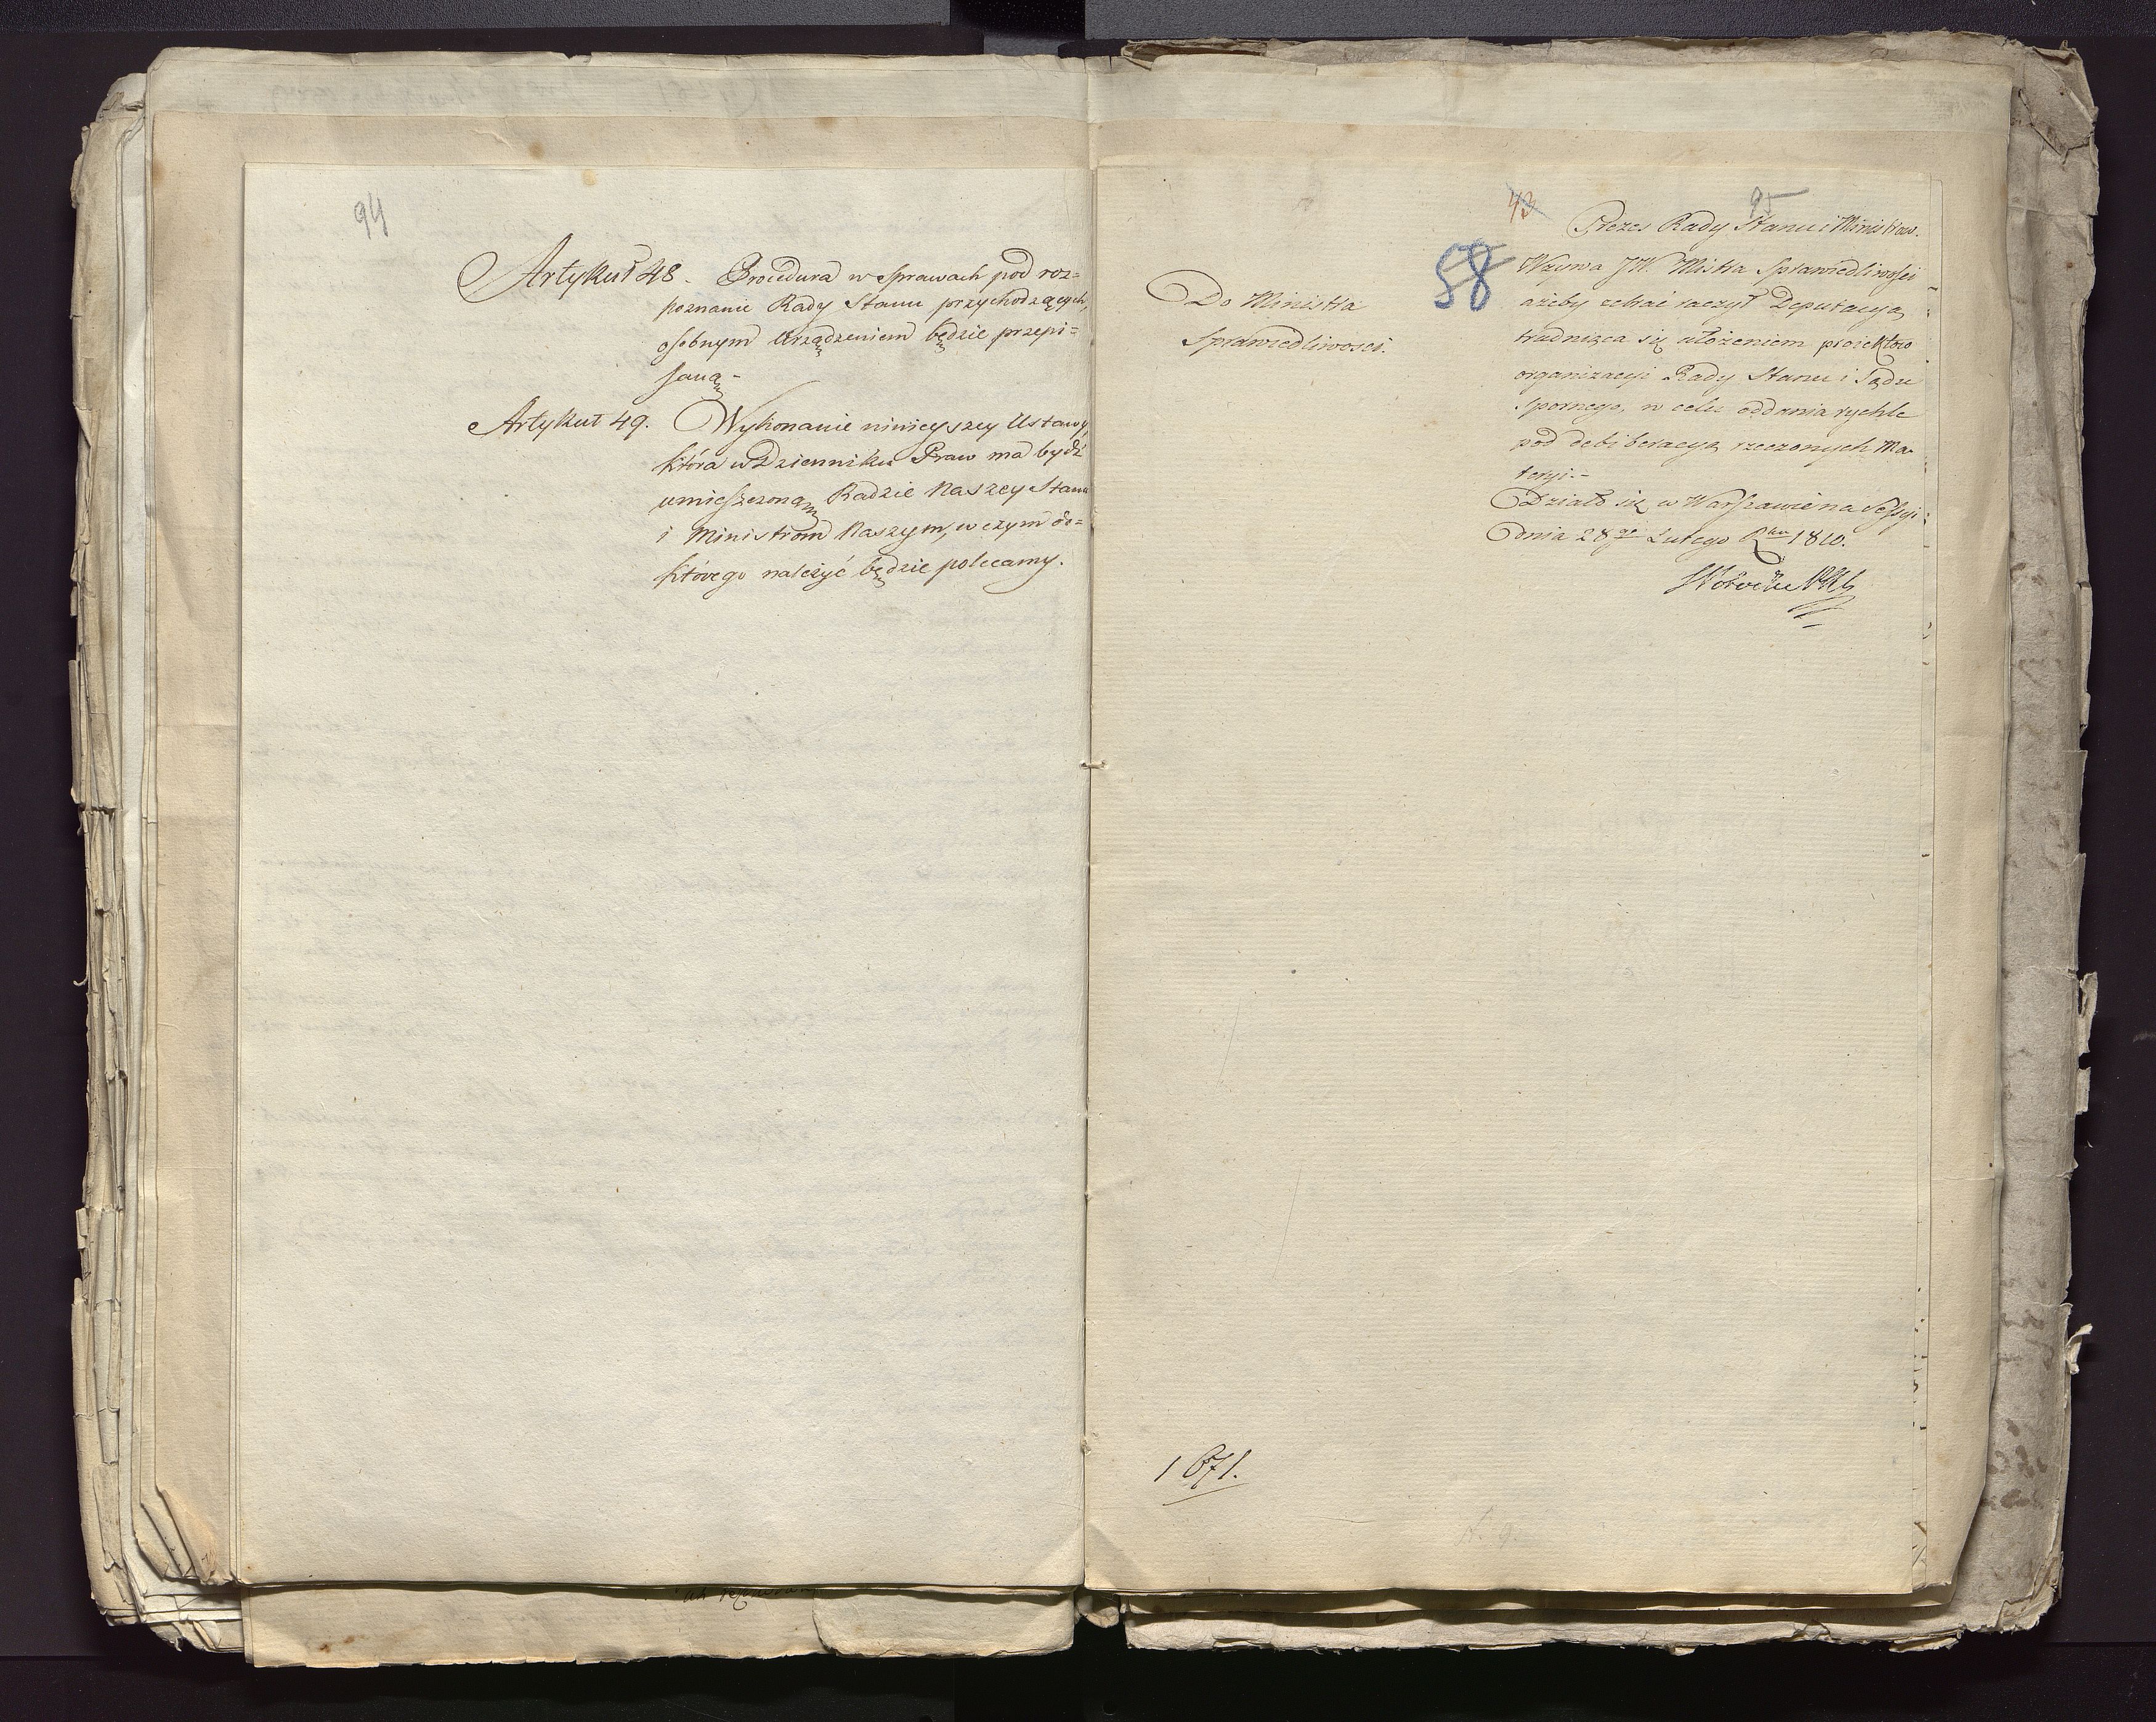 94
Artykuł 48. Procedura w Sprawach pod roz=
poznanie Rady Stanu przychodzących,
osobnym Urządzeniem będzie przepi=
saną -
Artykuł 49. Wykonanie ninieyszey Ustawy
która w Dzienniku Praw ma bydź
umieszczoną Radzie Naszey Stanu
i Ministrom Naszym, w czym do=
którego należyć będzie polecamy.
43 95
58
Prezes Rady Stanu i Ministrow.
Do Ministra
Sprawiedliwosci.
Wzywa JW. Mistra Sprawiedliwości
ażeby zebrać raczył Deputacyą
trudniącą się ułożeniem proiektow
organizacyi Rady Stanu i Sądu
Spornego, w celu oddania rychle
pod deliberacyą rzeczonych Ma-
teryi.-
Działo się w Warszawie na Sessyi
dnia 28go Lutego Rku 1810.
1671.